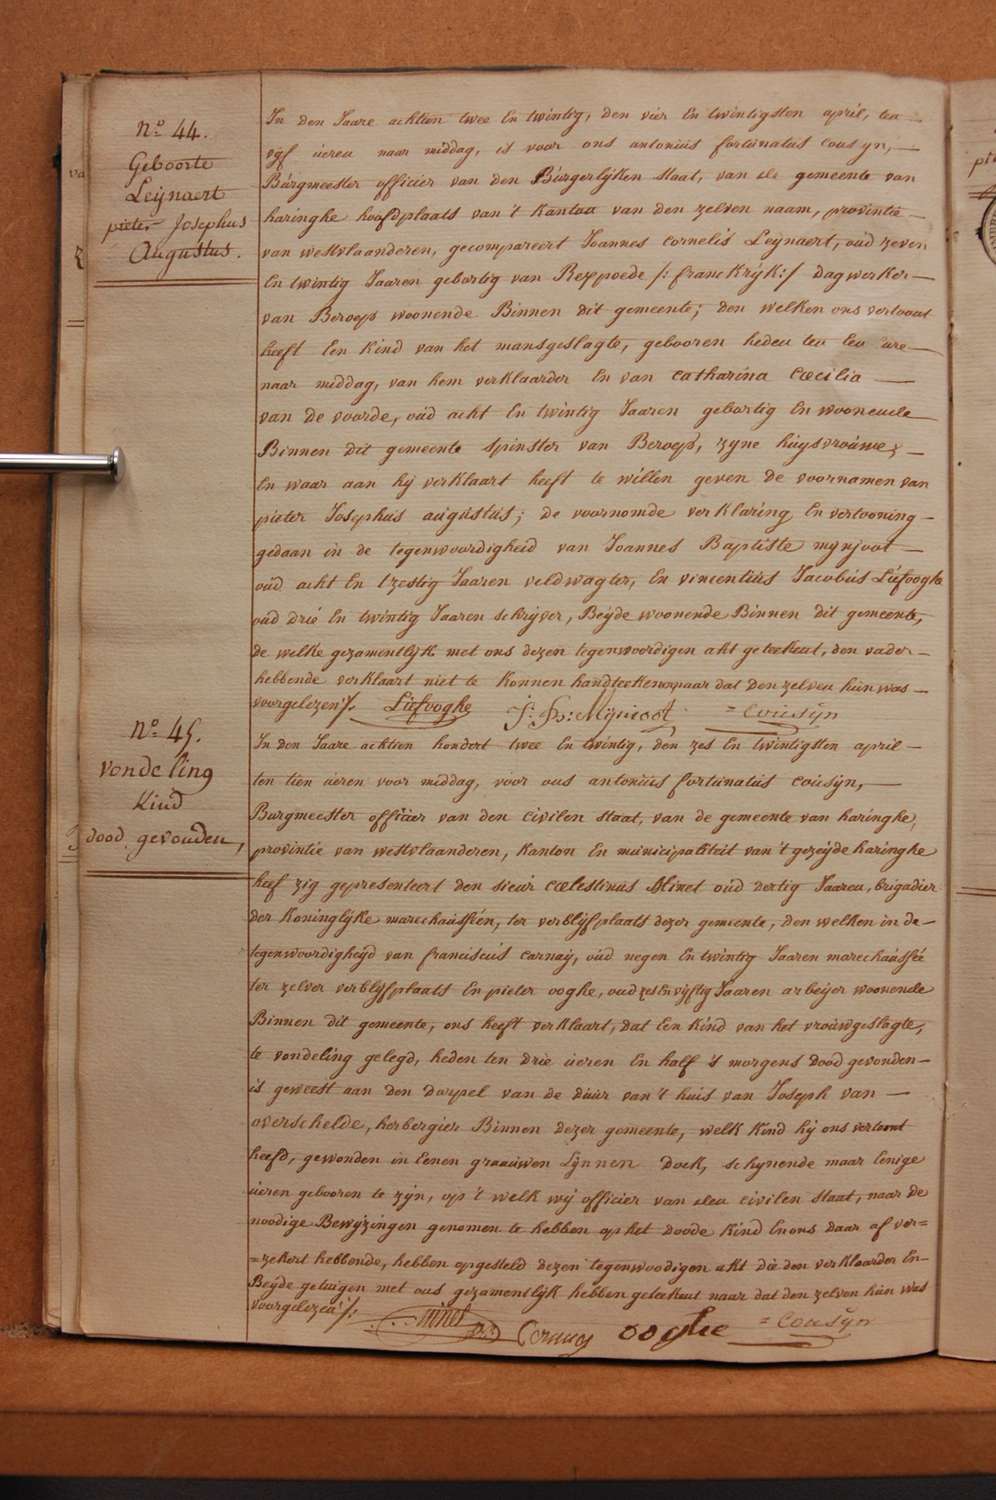 No. 44.
Geboorte
Leijnaert
pieter Josephus
Augustus.
In den Jaare achtien twee En twintig, den vier En twintigsten april, ten
vyf ueren naar middag, is voor ons antonius fortunatus cousyn,
Burgmeester officier van den Burgerlyken staat, van de gemeente van
haringhe hoofdplaats van 't Kanton van den zelven naam, provintie
van westvlaanderen, gecompareert Joannes cornelis Leijnaert, oud zeven
En twintig Jaaren gebortig van Rexpoede /: franckryk :/ dagwerker
van Beroep woonende Binnen dit gemeente; den welken ons vertoont
heeft Een Kind van het mansgeslagte, gebooren heden ten Een ure
naar middag, van hem verklaarder En van catharina cœcilia
van de voorde, oud acht En twintig Jaaren gebortig En woonende
Binnen dit gemeente spinster van Beroep, zyne huysvrouwe;
En waar aan hy verklaart heeft te willen geven de voornamen van
pieter Josephus augustus; de voornomde verklaring En vertooning
gedaan in de tegenwoordigheid van Joannes Baptiste mynjoot
oud acht En tzestig Jaaren veldwagter, En vincentius Jacobus Lufooghe
oud drie En twintig Jaaren schryver, Beyde woonende Binnen dit gemeente,
de welke gezamentlyk met ons dezen tegenwoordigen akt geteekent, den vader
hebbende verklaart niet te Konnen handteekenen naar dat den zelven hun was
voorgelezen /. Lufooghe J: B: Mynjoot = Cousyn
No. 45.
vondeling
Kind
dood gevonden,
In den Jaare achtien hondert twee En twintig, den zes En twintigsten april
ten tien ueren voor middag, voor ons antonius fortunatus cousyn,
Burgmeester officier van den civilen staat, van de gemeente van haringhe,
provintie van westvlaanderen, Kanton En municipaliteit van 't gezeyde haringhe
heef zig gepresenteert den sieur cœlestinus Minet oud dertig Jaaren, brigadier
der Koninglyke marechaussién, ter verblyfplaats dezer gemeente, den welken in de
tegenwoordigheyd van franciscus carnay, oud negen En twintig Jaaren marechaussée
ter zelver verblyfplaats En pieter ooghe, oud zes En vyftig Jaaren arbeijer woonende
Binnen dit gemeente, ons heeft verklaart, dat Een Kind van het vrouwgeslagte,
te vondeling gelegd, heden ten drie ueren En half 's morgens dood gevonden
is geweest aan den dorpel van de duur van 't huis van Joseph van
overschelde, herbergier Binnen dezer gemeente, welk Kind hy ons vertoont
heefd, gewonden in Eenen graauwen Lynnen Doek, schynende maar Eenige
ueren gebooren te zyn, op 't welk wy officier van den civilen staat, naar de
noodige Bewyzingen genomen te hebben op het doode Kind En ons daar af ver=
=zekert hebbende, hebben opgesteld dezen tegenwoodigen akt die den verklaarder En
Beyde getuigen met ons gezamentlyk hebben geteekent naar dat den zelven hun was
voorgelezen /: Minet Carnay ooghe = Cousyn